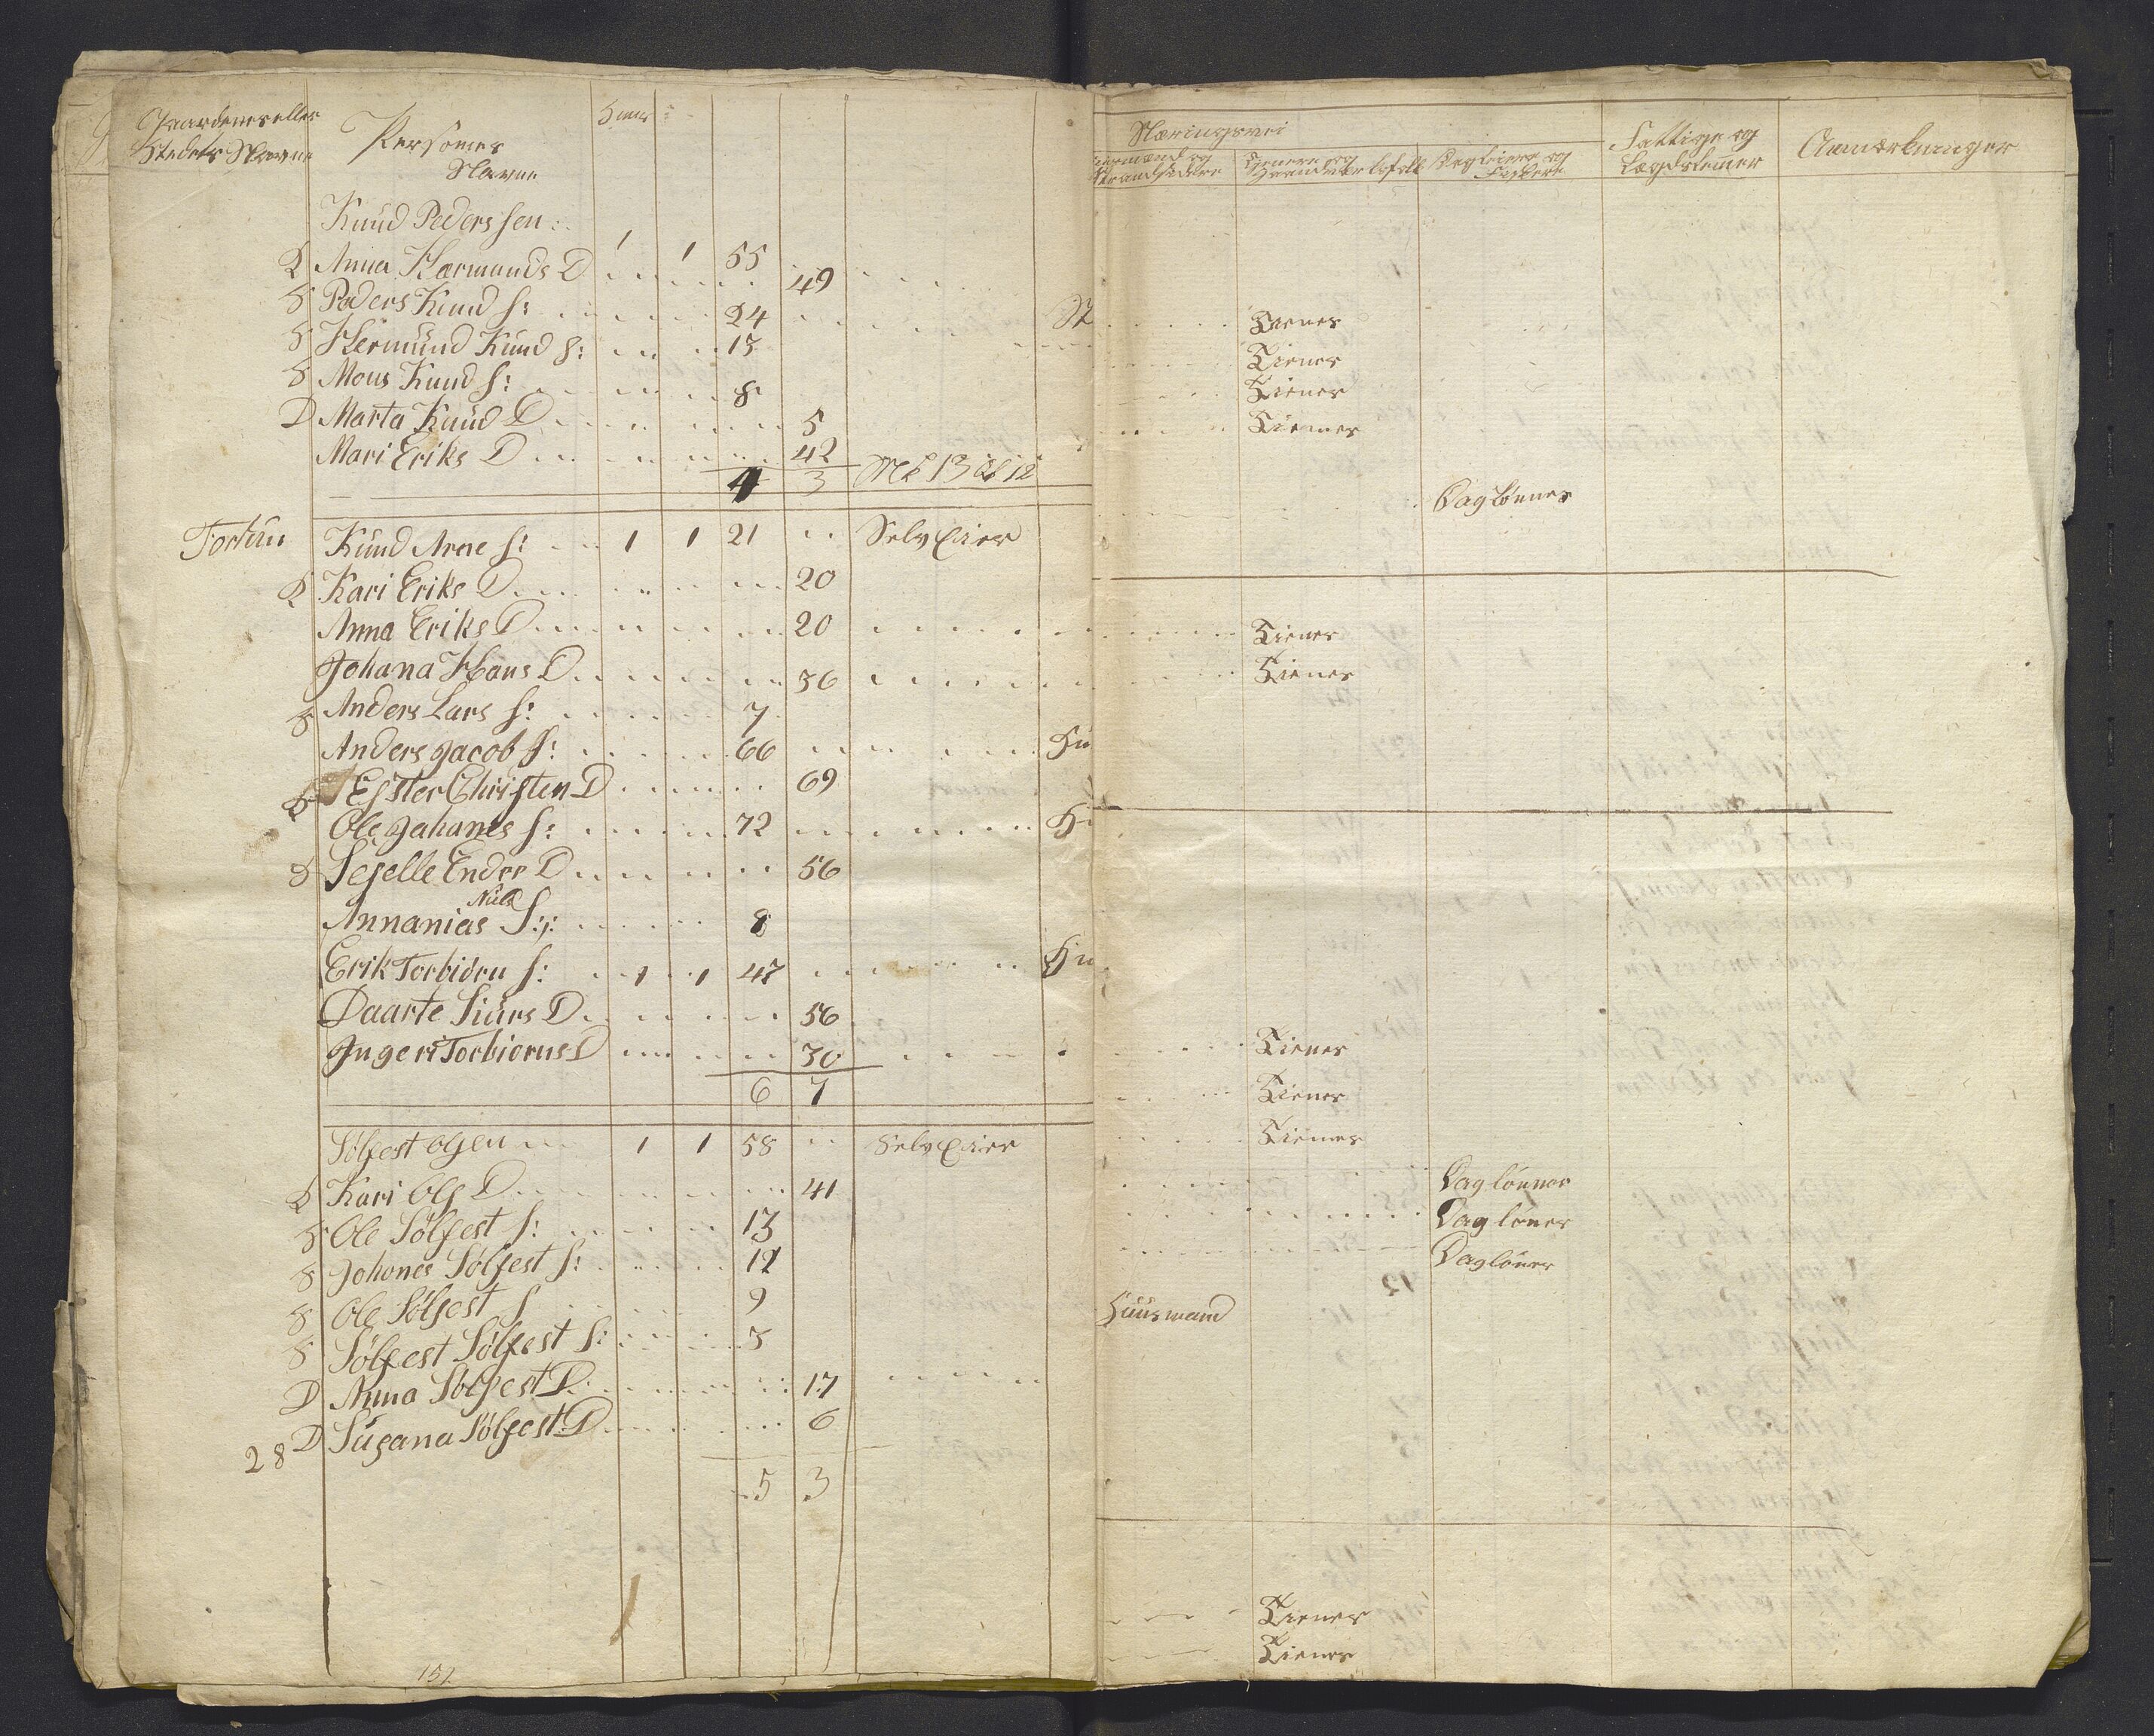 Gaardenes eller
Stedets Navne
Personers
Navne
Huus
Knud Peders sen
1 1 55
Q Anna Hermunds D 49
S Peders Knud S: 24
S Hermund Knud S: 13
S Mons Knud S: 8
D Marta Knud D 5
Mari Eriks D 42
4 3
Tortun Knud Arne S: 1 1 21 Selv Eier
Q Kari Eriks D 20
Anna Eriks D 20
Johana Hans D 36
S Anders Lars S: 7
Anders Jacob S: 66 Hu
Ester Christen D 69
Ole Johanes S: 72
Sejelle Endre D 56
Niels
Annanias S: 8
Erik Torbiørn S: 1 1 47 Hu
Daarte Siurs D 56
Ingeri Torbiørns D 30
6 7
Sølfest Olsen 1 1 58 Selv Eier
Q Kari Ols D 41
S Ole Sølfest S: 13
S Johanes Sølfest S: 12
S Ole Sølfest S 9
S Sølfest Sølfest S: 3
D Anna Sølfest D 17
28 D Susana Sølfest D 6
5 3
151
Næringsvei
Fattige og
Lægdslemer
Anmærkninger
Tienere og
Haandverksfolk
Dagleiere og
Fiskere
Tiener
Tiener
Tiener
Tienner
Daglønner
Tiener
Tiener
Tiener
Tiener
Tiener
Daglønner
Dagløner
Dagløner
Huusmand
Tiener
Tiener